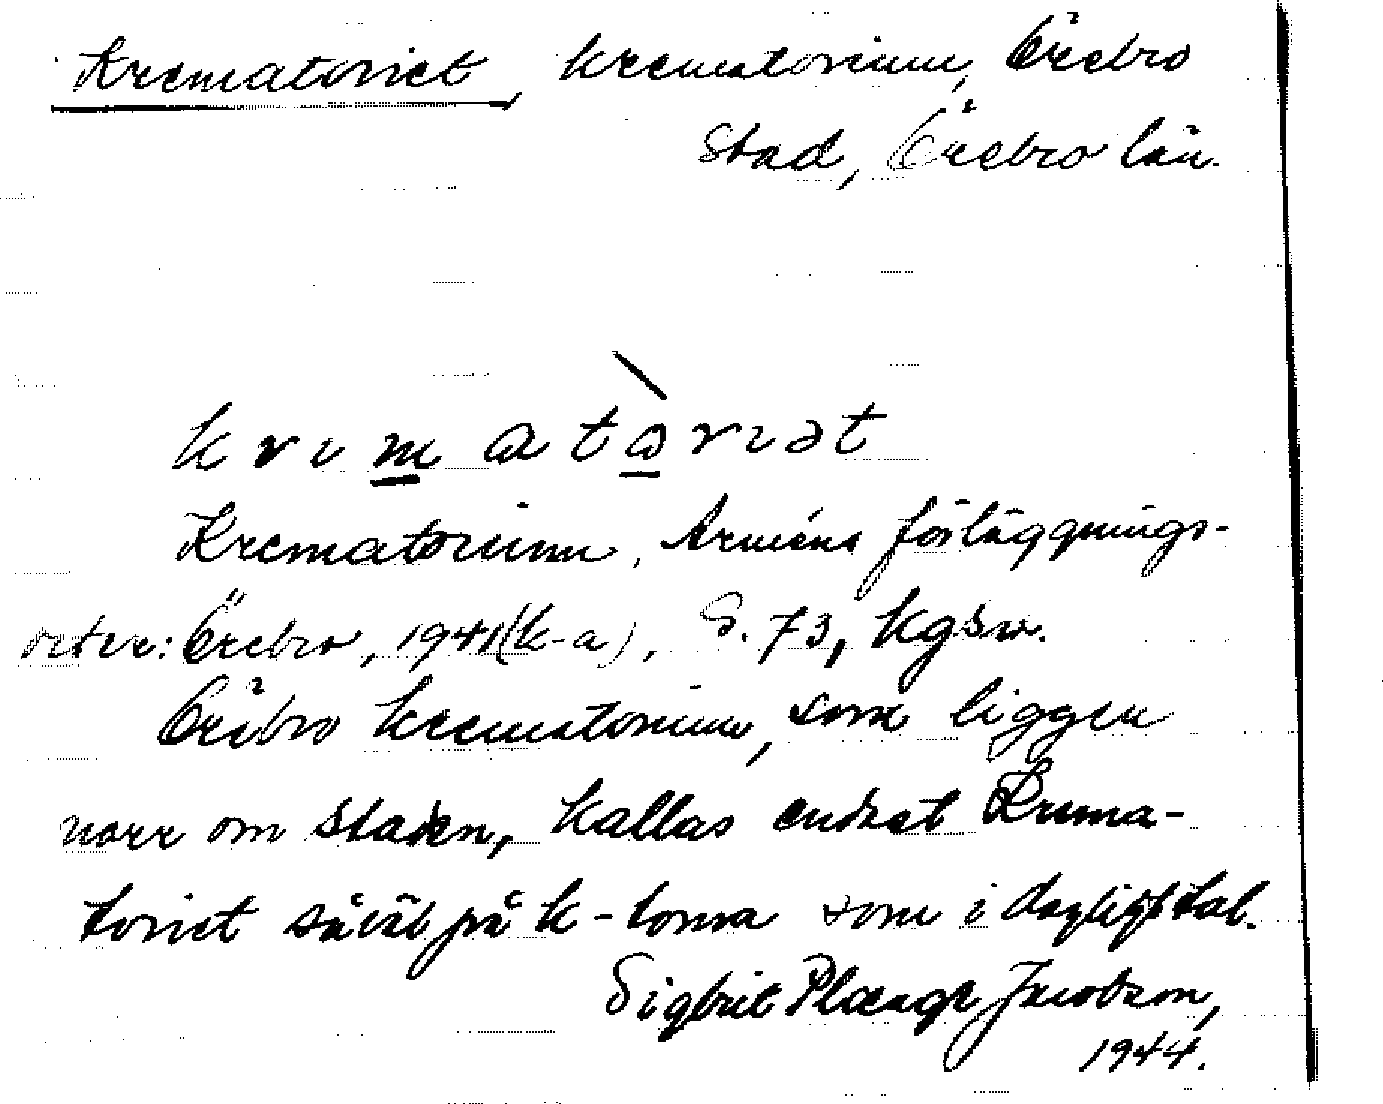 Krematoriet, krematorium, Örebro
stad, Örebro län.
krematòriet
Krematorium, Arméns förläggnings-
orter: Örebro, 1941 (k-a), S. 73, kgsv.
Örebro krematorium, som ligger
norr om staden, kallas endast Krema-
toriet såväl på k-torna som i dagligt tal.
Sigbrit Plænge Jacobson,
1944.